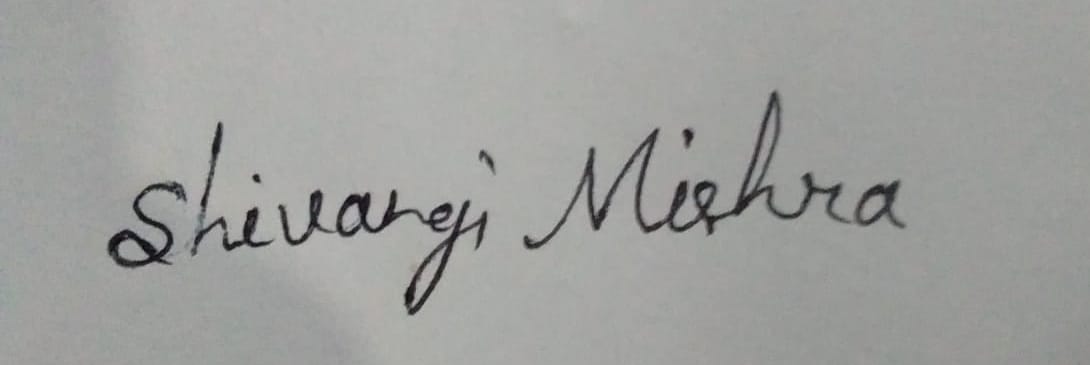 Shivangi Mishra